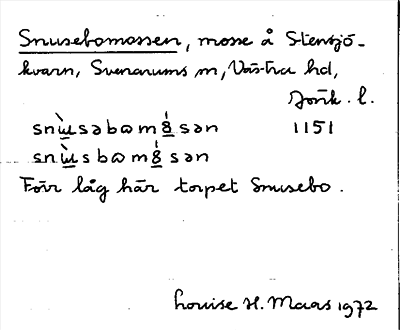 Snusebomossen, mosse å Stensjö-
kvarn, Svenarums sn, Västra hd,
Jönk. l.
snùsəbωm8́sən 1151
snùsbωm8́sən
Förr låg här torpet Snusebo.
Louise H. Maas 1972